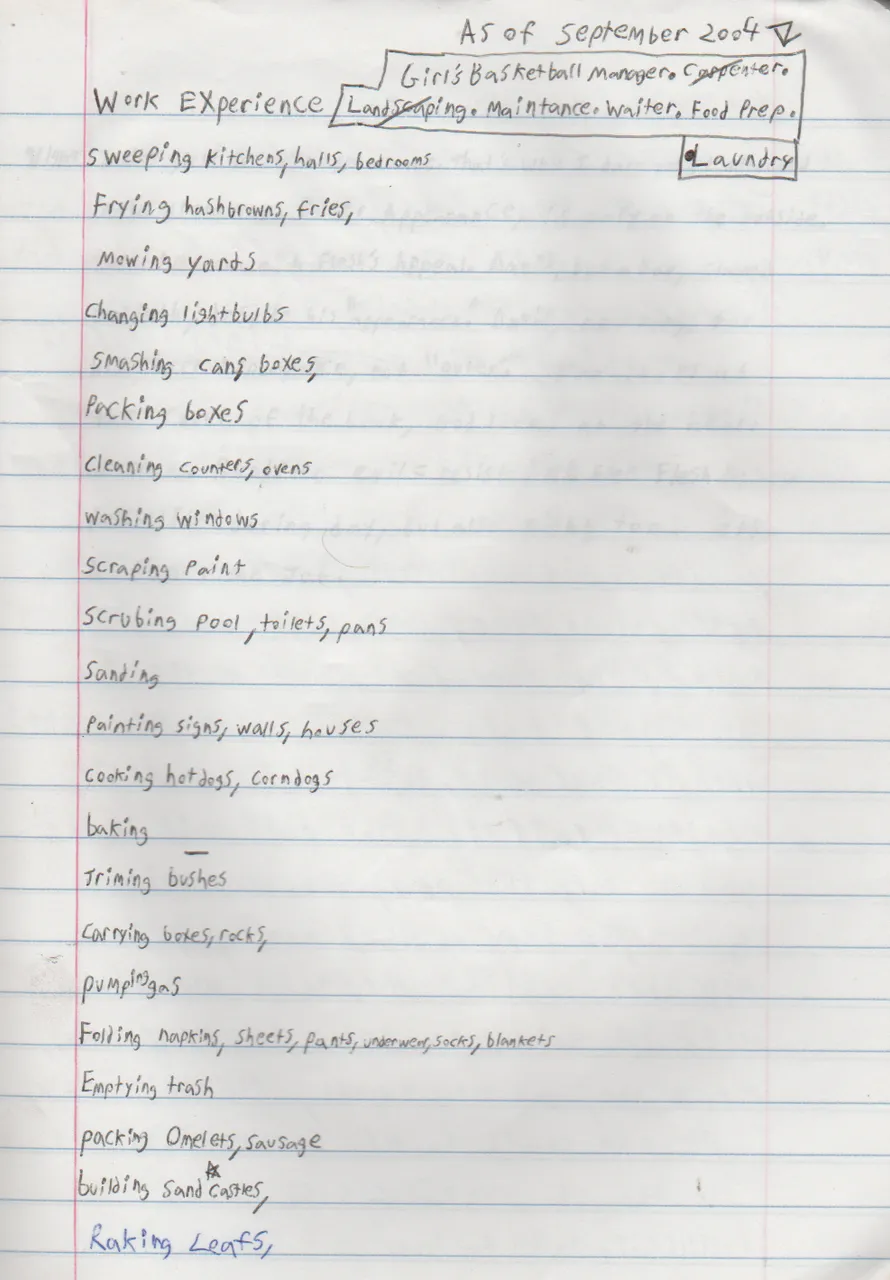 As of September 2004
Girl's Basketball Manager. Carpenter.
Work Experience Landscaping. Maintance. Waiter. Food Prep.
Sweeping kitchens, halls, bedrooms Laundry
Frying hashbrowns, fries,
Mowing yards
Changing lightbulbs
Smashing cans, boxes,
Packing boxes
Cleaning counters, ovens
Washing windows
Scraping Paint
Scrubing pool, toilets, pans
Sanding
Painting signs, walls, houses
Cooking hotdogs, corndogs
baking
Triming bushes
Carrying boxes, rocks,
pumping gas
Folding napkins, sheets, pants, underwear, socks, blankets
Emptying trash
packing Omelets, sausage
building sand castles,
Raking Leafs,